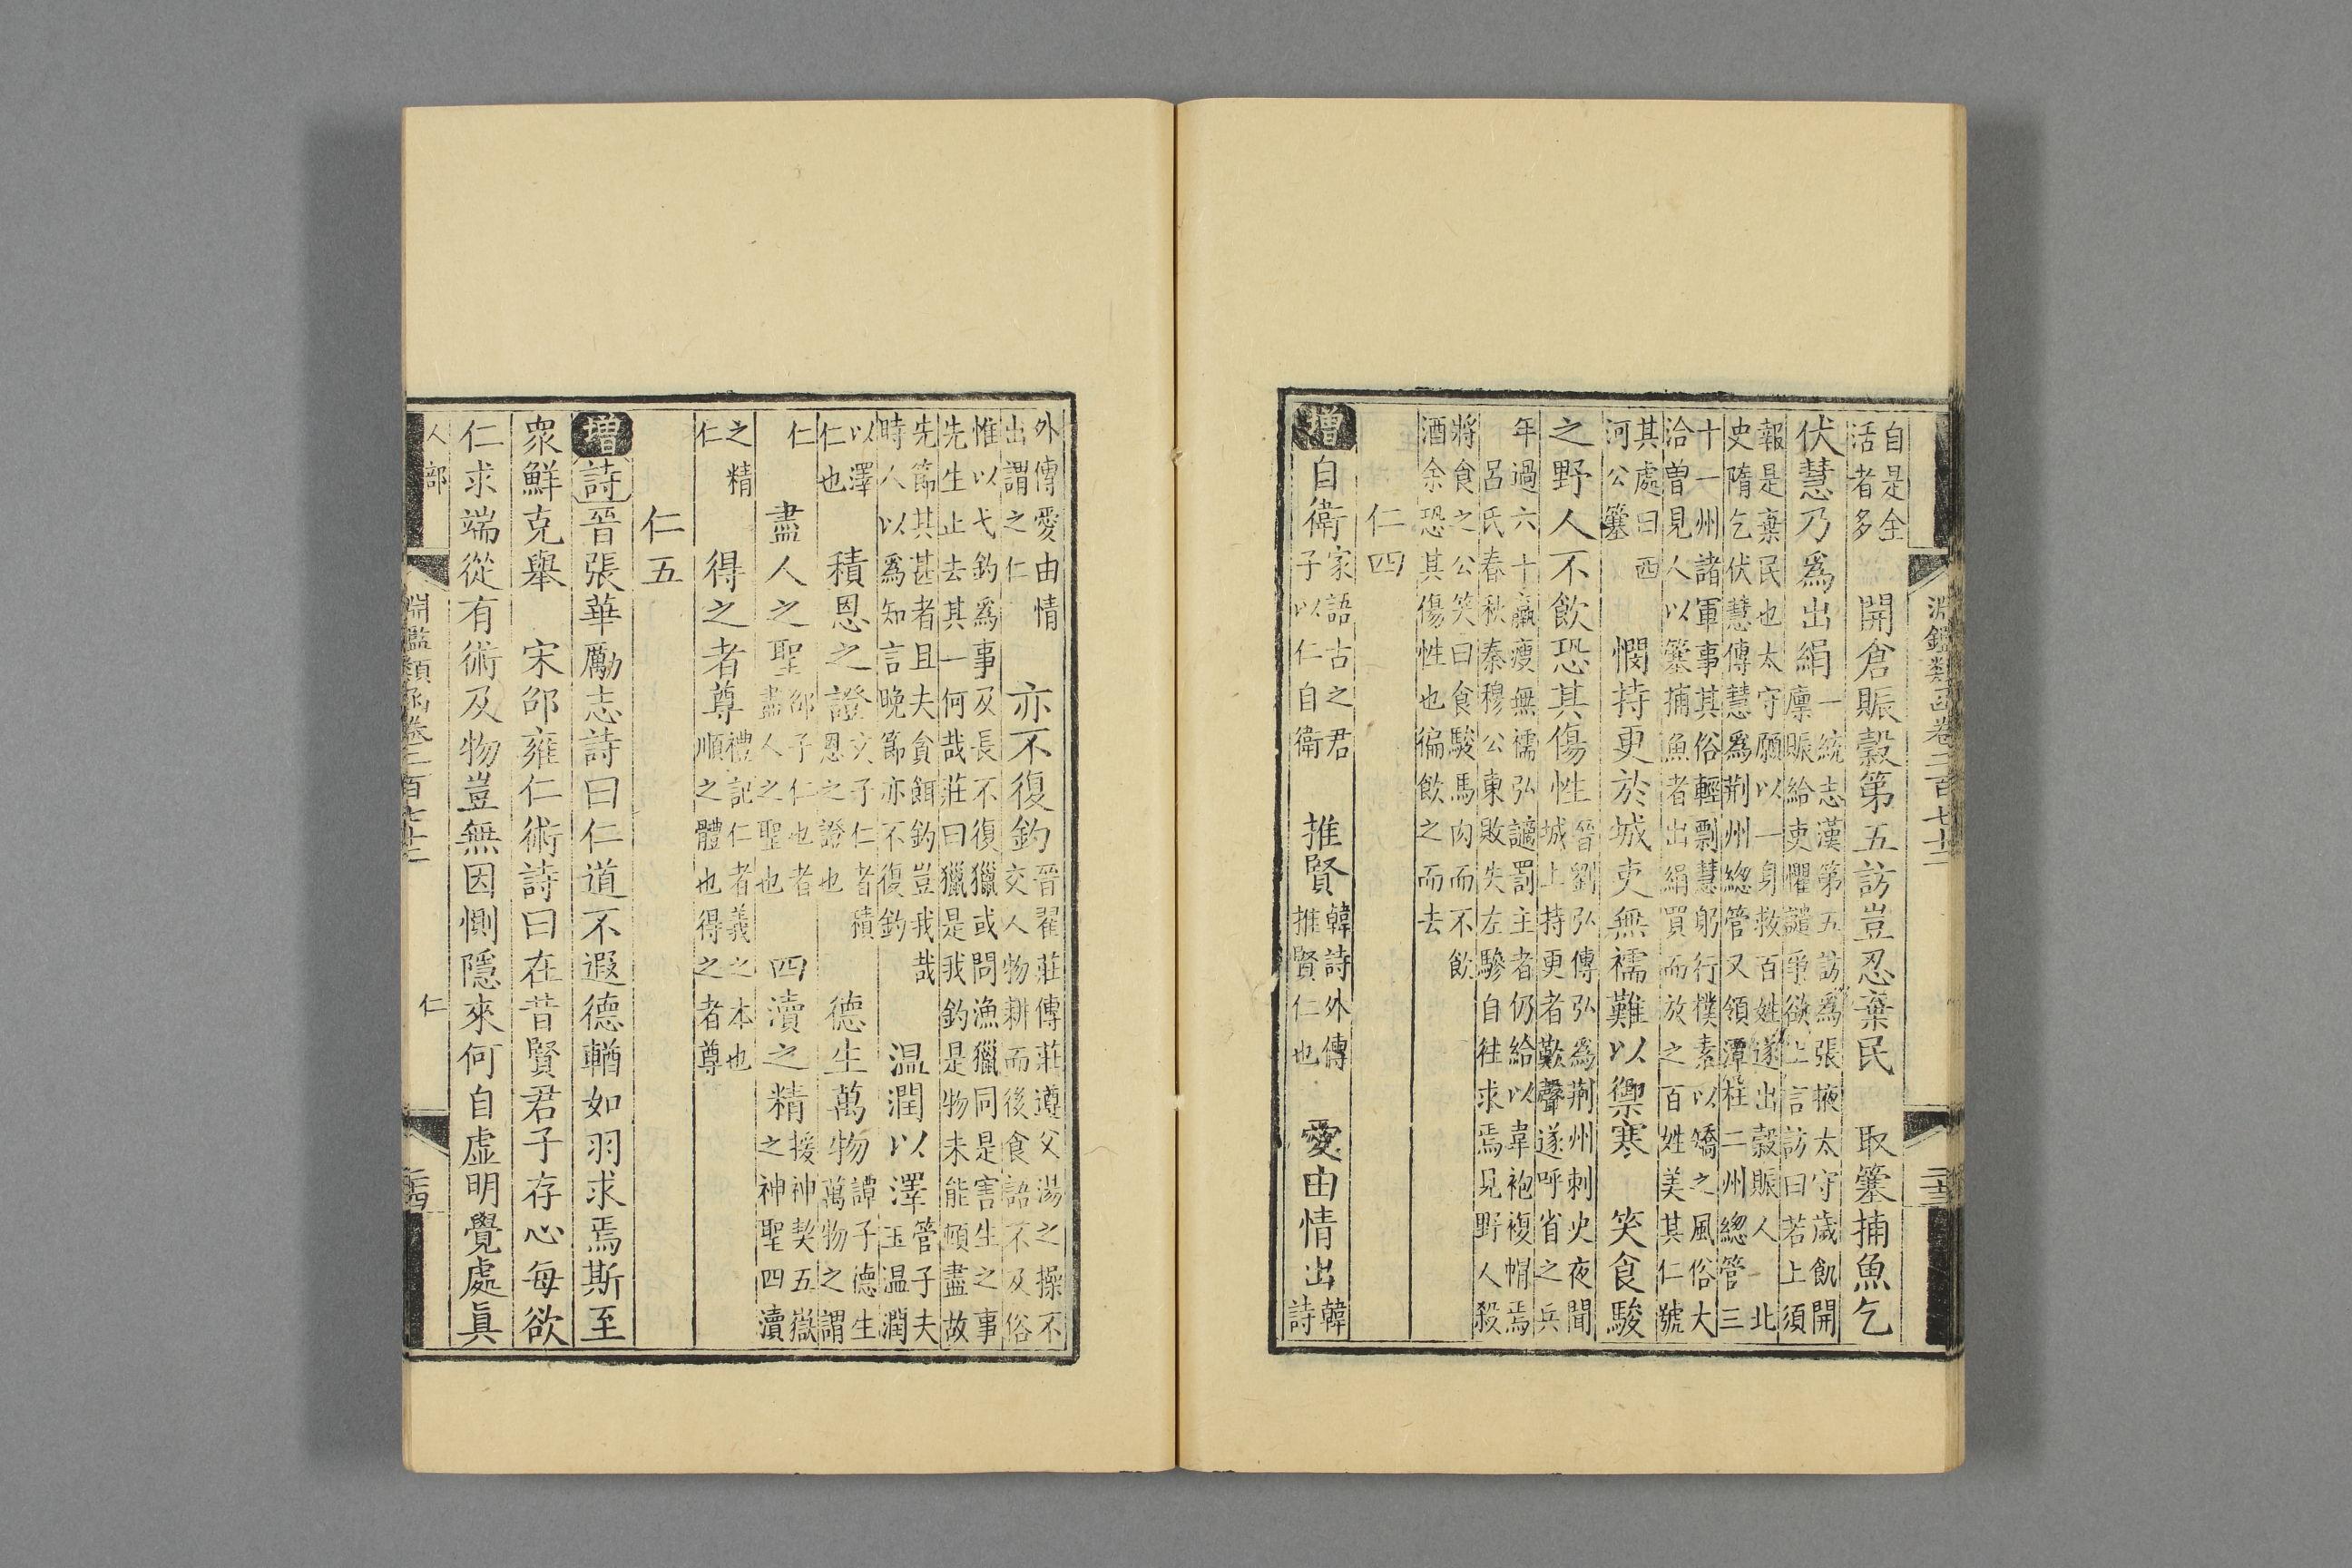 淵鑑類函卷二百七十二
二十三
自是全
活者多
開倉賑穀第五訪豈忍棄民
取䉟捕魚乞
伏慧乃爲出絹
一統志漢第五訪爲張掖太守歲飢開
廩賑給吏懼譴爭欲上言訪曰若上須
報是棄民也太守願以一身救百姓遂出穀賑人
北
史隋乞伏慧傳慧爲荆州總管又領潭桂二州總管三
十一州諸軍事其俗輕剽慧躬行樸素以矯之風俗大
洽曽見人以䉟捕魚者出絹買而放之百姓美其仁號
其處曰西
河公䉟
憫持更於城吏無襦難以禦寒
笑食駿
之野人不飲恐其傷性
晉劉弘傳弘爲荆州刺史夜聞
城上持更者歎聲遂呼省之兵
年過六十羸瘦無襦弘讁罰主者仍給以韋袍複帽焉
呂氏春秋秦穆公東敗失左驂自往求焉見野人殺
將食之公笑曰食駿馬肉而不飲
酒余恐其傷性也徧飲之而去
仁四
增
自衛
家語古之君
子以仁自衛
推賢
韓詩外傳
推賢仁也
愛由情出
韓
詩
外傳愛由情
出謂之仁
亦不復釣
晉翟莊傳莊遵父湯之操不
交人物耕而後食語不及俗
惟以弋釣爲事及長不復獵或問漁獵同是害生之事
先生止去其一何哉莊曰獵是我釣是物未能頓盡故
先節其甚者且夫貪餌釣豈我哉
時人以爲知言晚節亦不復釣
温潤以澤
管子夫
玉温潤
以澤
仁也
積恩之證
文子仁者積
恩之證也
德生萬物
譚子德生
萬物之謂
仁
盡人之聖
邵子仁也者
盡人之聖也
四瀆之精
援神契五嶽
之神聖四瀆
之精
仁
得之者尊
禮記仁者義之本也
順之體也得之者尊
仁五
增
詩
晉張華勵志詩曰仁道不遐德輶如羽求焉斯至
衆鮮克舉
宋邵雍仁術詩曰在昔賢君子存心每欲
仁求端從有術及物豈無因惻隱來何自虛明覺處眞
人部
仁
淵鑑類函卷二百七十二
二十四